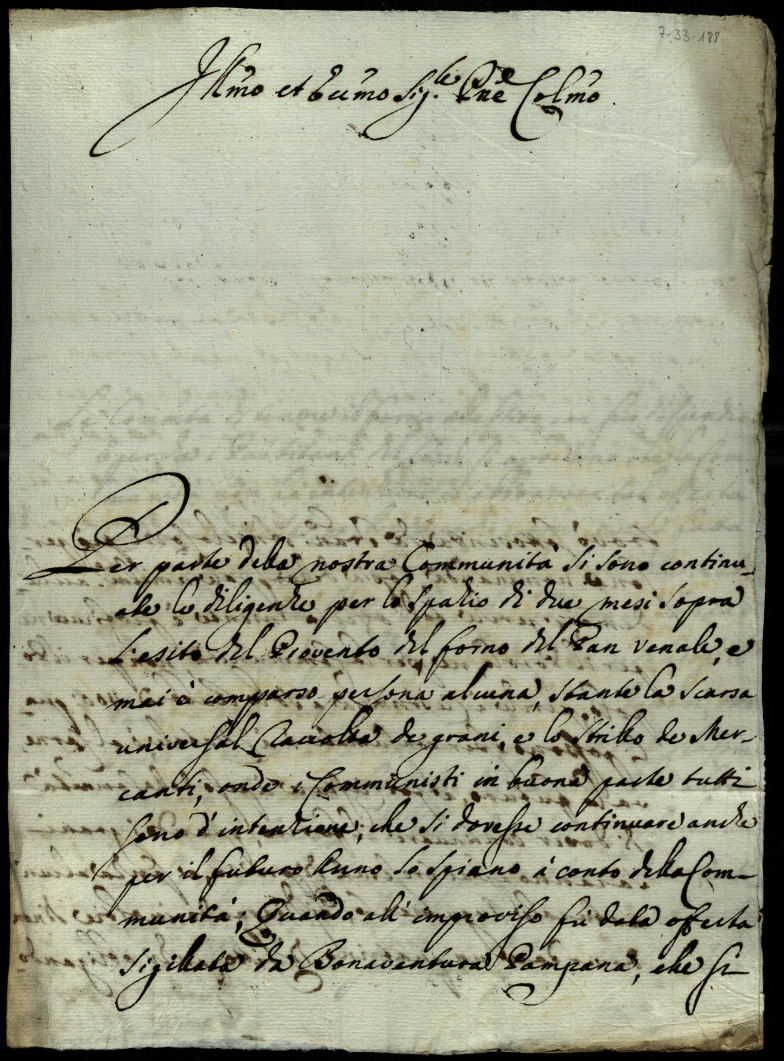 7-33-188
Ill.mo et Ecc.mo Sig.re P.ne Col.mo
Per parte della nostra Communità si sono continu-
ate le diligenze per lo spazio di due mesi sopra
l'esito del Provento del forno del Pan venale, e
mai è comparso persona alcuna, stante la scarsa
universal raccolta de grani, e lo strillo de Mer-
canti, onde i Communisti in buona parte tutti
sono d'intenzione, che si dovesse continuare anche
per il futuro Anno lo spiano à conto della Com-
munità; Quando all'improviso fù data offerta
sigillata da Bonaventura Pampana, che si